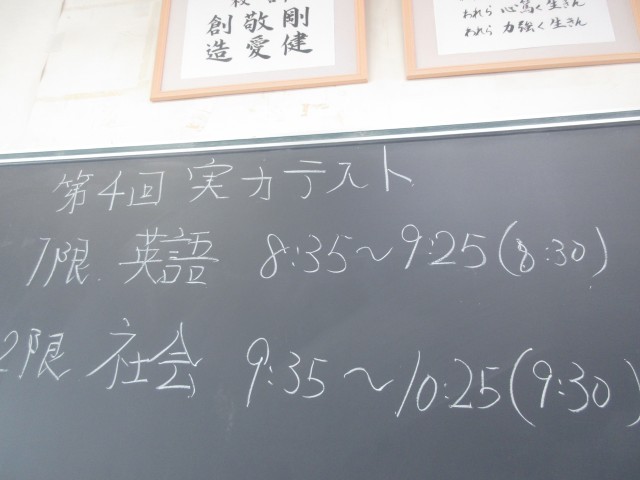 剛健
敬愛
創造
われら 心篤く生きん
われら 力強く生きん
第4回 実力テスト
1限 英語 8:35〜9:25(8:30)
2限 社会 9:35〜10:25(9:30)